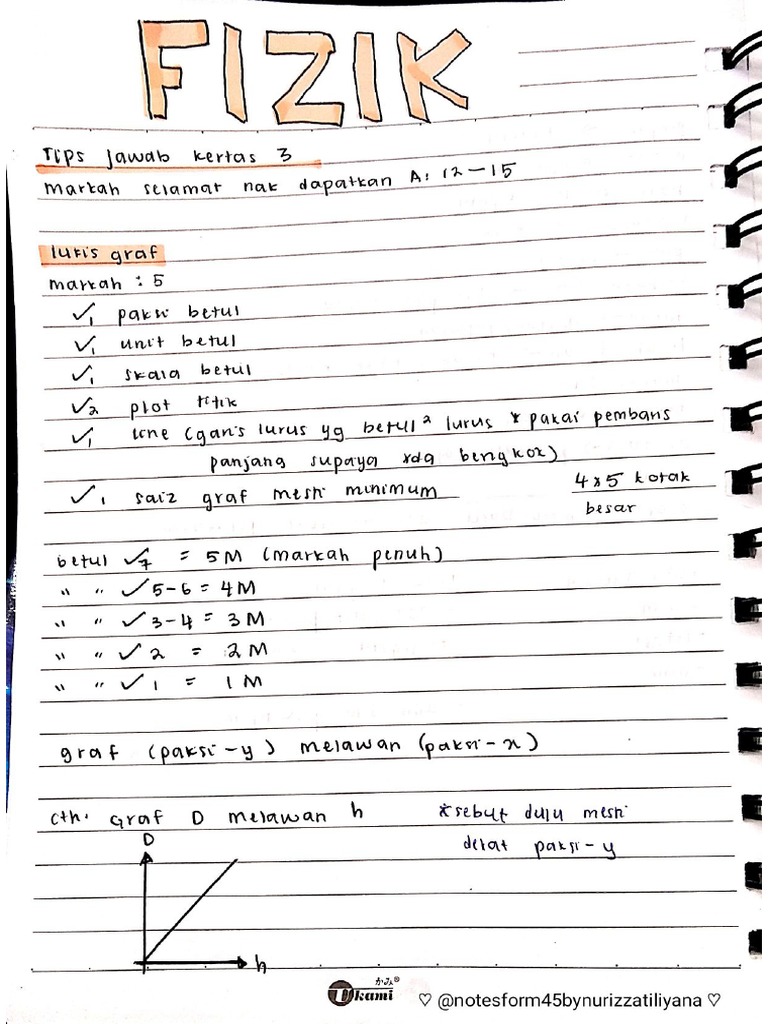 FIZIK
Tips jawab kertas 3
markah selamat nak dapatkan A: 12-15
lukis graf
markah : 5
✓1 paksi betul
✓1 unit betul
✓1 skala betul
✓2 plot titik
✓1 line (garis lurus yg betul² lurus * pakai pembaris
panjang supaya xda bengkok)
✓1 saiz graf mesti minimum 4x5 kotak
besar
betul ✓7 = 5M (markah penuh)
" " ✓5-6 = 4M
" " ✓3-4 = 3M
" " ✓2 = 2M
" " ✓1 = 1M
graf (paksi-y) melawan (paksi-x)
cth: Graf D melawan h *sebut dulu mesti
dekat paksi-y
D
h
かみ®
Ukami ♡ @notesform45bynurizzatiliyana ♡